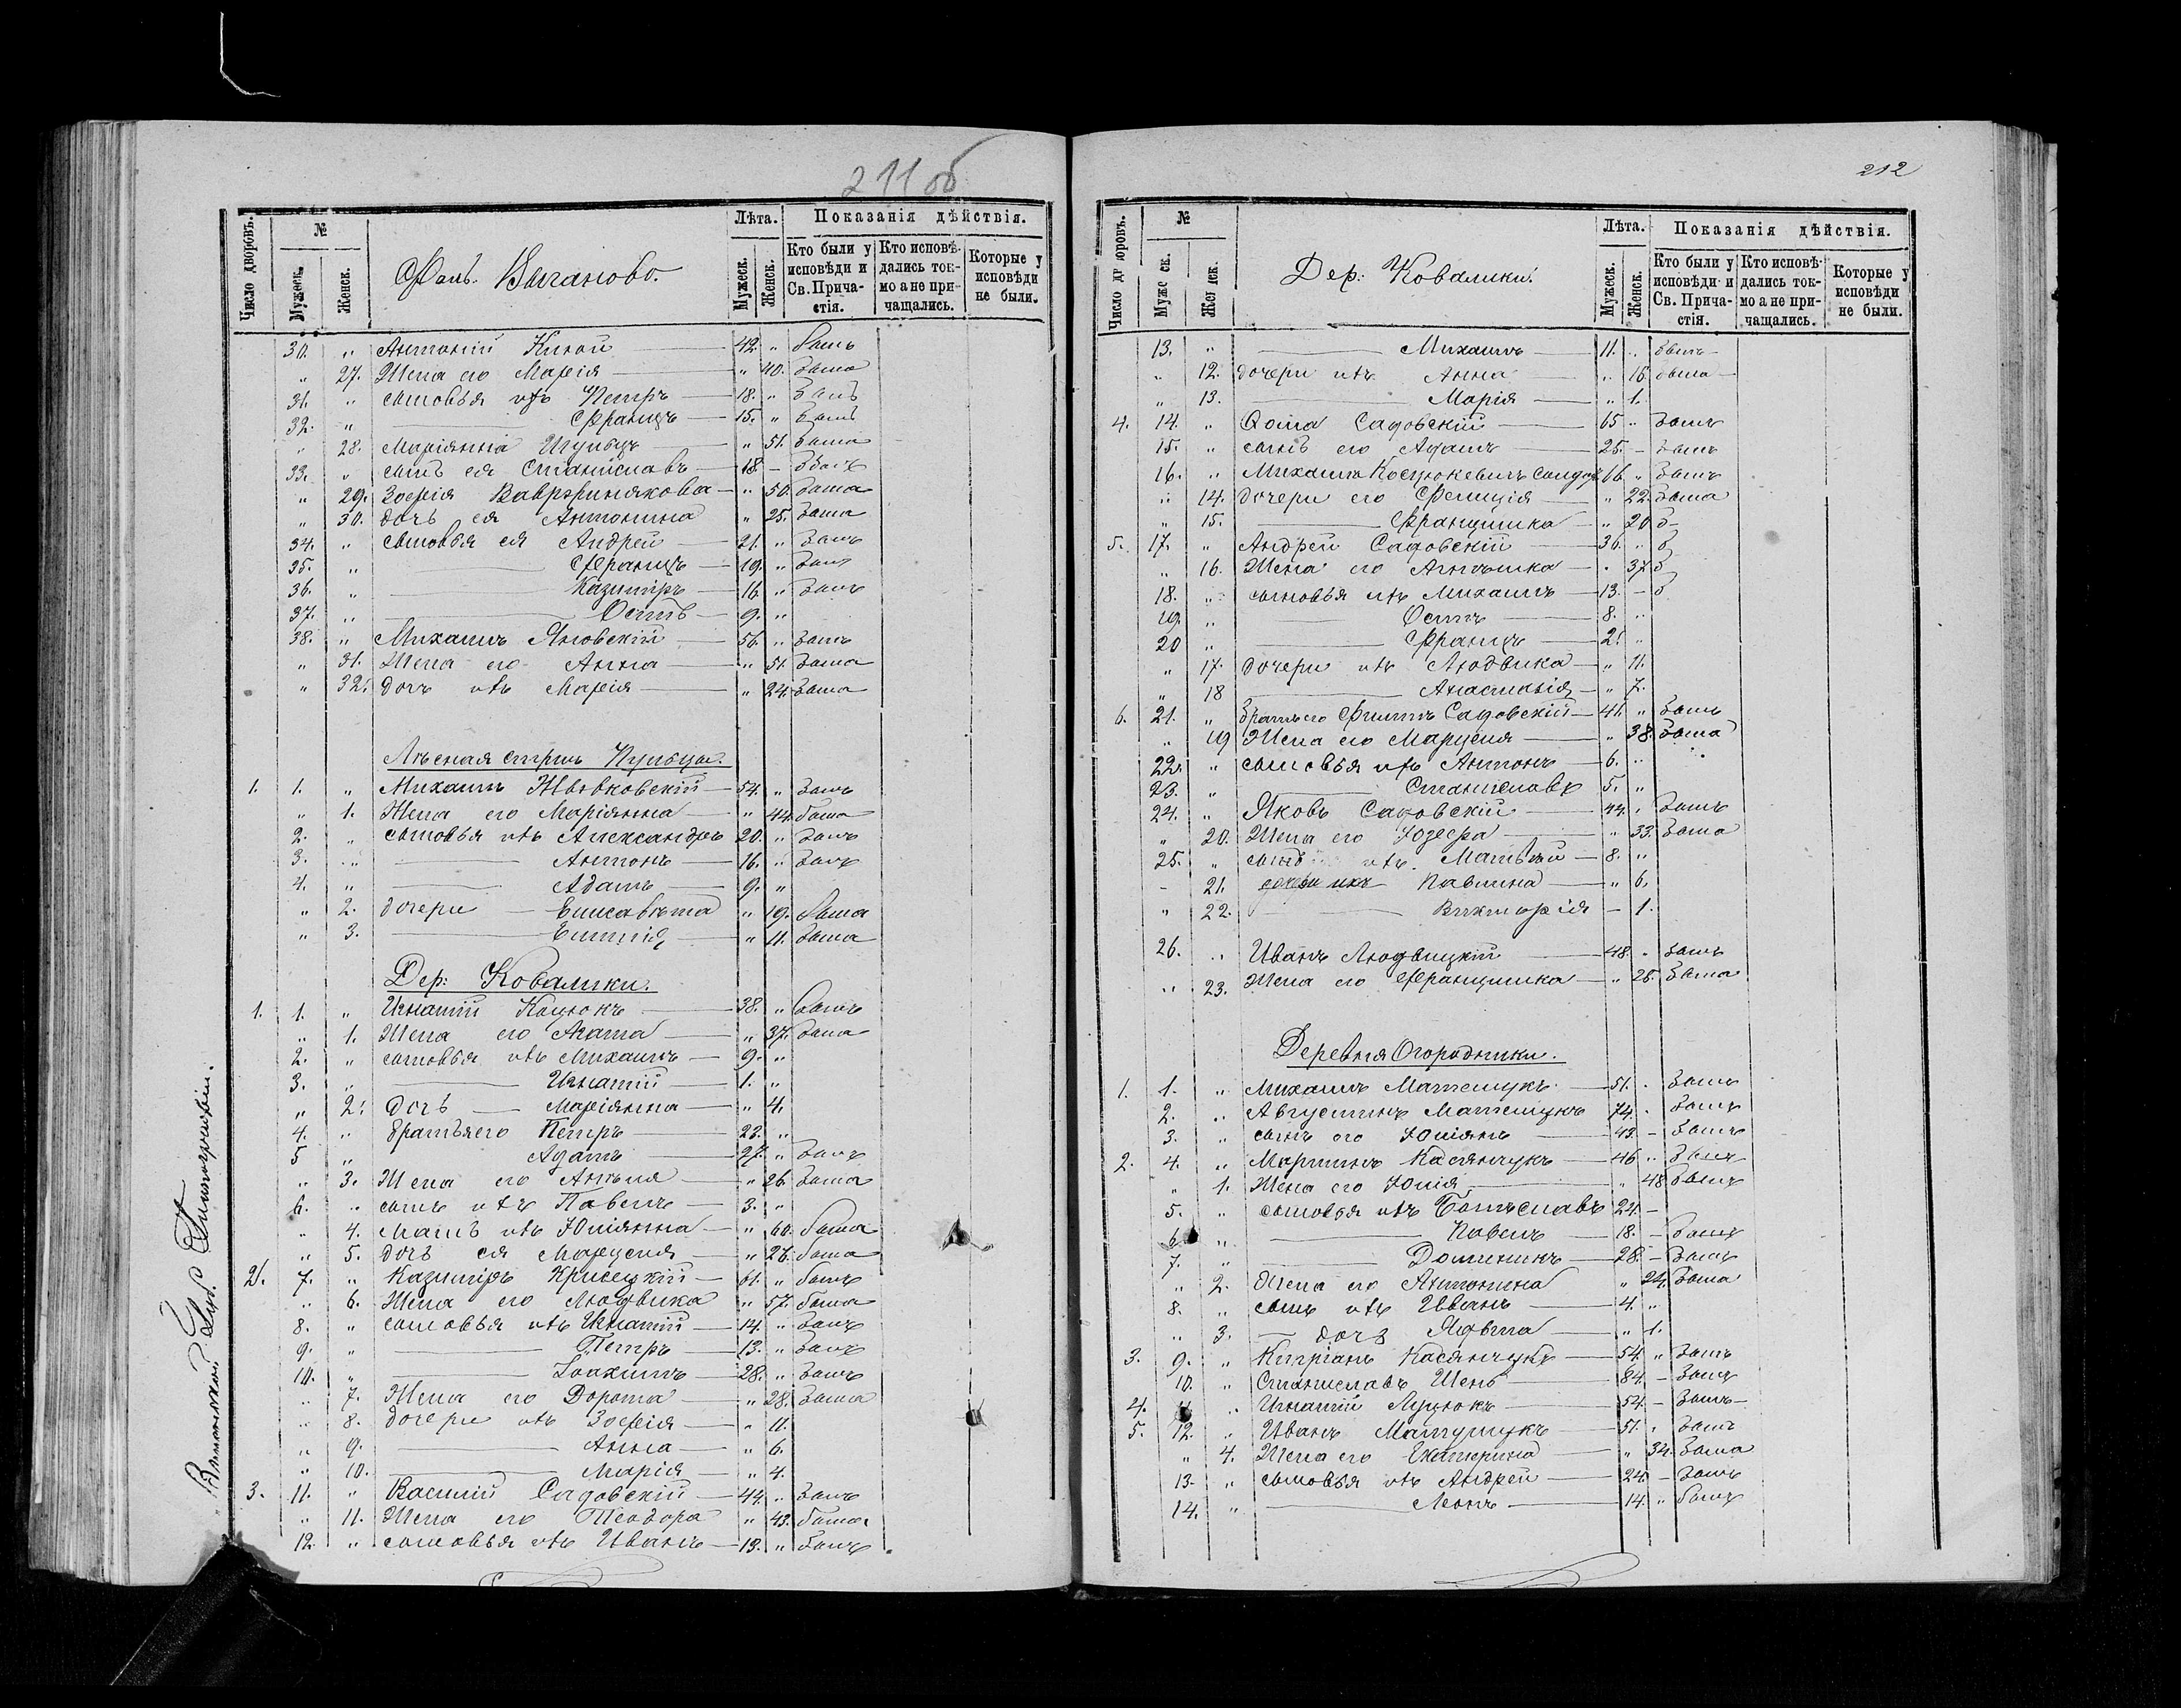 211 об
Число дворовъ. № Лѣта. Показанія дѣйствія.
Мужеск. Женск. Фоль. Мужеск. Женск. Кто были у исповѣди и Св. Прича-стія. Кто исповѣ-дались ток-мо а не при-чащались. Которые у исповѣди не были.
30. " Антоній 42. " былъ
" 27. Жена его Марія " 40. была
31. " сыновья ихъ Петръ 18. " былъ
32. " Францъ 15. " былъ
" 28. Маріянна " 51. была
33. " сынъ ея Станиславъ 18 - былъ
" 29. Зофія " 50. была
" 30. дочь ея Антонина " 25. была
34. " сыновья ея Андрей 21. " былъ
35. " Францъ 19. " былъ
36. " Казиміръ 16 " былъ
37. " Осипъ 9. "
38. " Михаилъ Яновскій 56. " былъ
" 31. Жена его Анна " 51. была
" 32. дочь ихъ Марія " 24. была
Лѣсная стража
1. 1. " Михаилъ 54. " былъ
" 1. Жена его Маріянна " 44. была
2. " сыновья ихъ Александръ 20. " былъ
3. " Антонъ 16. " былъ
4. " Адамъ 9. "
" 2. дочери Елисавета " 19. была
" 3. Емилія " 11. была
Дер: Ковалики.
1. 1. " Игнатій Кацюкъ 38. " былъ
" 1. Жена его Агата " 37. была
2. " сыновья ихъ Михаилъ 9. "
3. " Игнатій 1. "
" 2. Дочь Маріянна " 4.
4. " братья его Петръ 22. "
5 " Адамъ 27. " былъ
" 3. Жена его " 26 была
6. " сынъ ихъ Павелъ 3. "
" 4. Мать ихъ Юліянна " 60. была
" 5. дочь ея Марцеля была
2. 7. " Казиміръ 61. " былъ
" 6. Жена его Людвика " 57. была
8. " сыновья ихъ Игнатій 14. " былъ
9. " Петръ 13. " былъ
10. " Іоахимъ 28. " былъ
" 7. Жена его Дорота " 28. была
" 8. дочери ихъ Зофія " 11.
" 9. Анна " 6.
" 10. Марія " 4.
3. 11. " Василій Садовскій 44. " былъ
" 11. Жена его Теодора " 43. была
12. " сыновья ихъ Иванъ 19. " былъ
212
Число дворовъ. № Лѣта. Показанія дѣйствія.
Мужеск. Женск. Дер: Ковалики. Мужеск. Женск. Кто были у исповѣди и Св. Прича-стія. Кто исповѣ-дались ток-мо а не при-чащались. Которые у исповѣди не были.
13. " Михаилъ 11. " былъ
" 12. дочери ихъ Анна " 16. была
" 13. Марія " 1.
4. 14. " Ѳома Садовскій 65 " былъ
15. " сынъ его Адамъ 25. - былъ
16. " Михаилъ 66. " былъ
" 14. дочери его Фелиція " 22. была
" 15. Францишка " 20 б
5. 17. " Андрей Садовскій 36. " б
" 16. Жена его " 37 б
18. " сыновья ихъ Михаилъ 13. - б
19. " Осипъ 8. "
20 " Францъ 2. "
" 17. дочери ихъ Людвика " 11.
" 18 Анастазія " 7.
6. 21. " братъ его Филипъ Садовскій 41. " былъ
" 19 Жена его Марцеля " 38. была
22. " сыновья ихъ Антонъ 6. "
23. " Станиславъ 5. "
24. " Яковъ Садовскій 44. " былъ
" 20. Жена его Юзефа " 33. была
25. " сынъ ихъ Матвѣй 8. "
- 21. дочери ихъ Павлина " 6.
" 22. Викторія - 1.
26. " Иванъ Людвицкій 48. " былъ
" 23. Жена его Францишка " была
Деревня Огородники.
1. 1. " Михаилъ 51. " былъ
2. " Августинъ 74. " былъ
3. " сынъ его Юліянъ 43. - былъ
2. 4. " Мартинъ Касянчукъ 46 " былъ
" 1. Жена его Юлія " 48
5. " сыновья ихъ Болеславъ 24. -
6 " Павелъ 18. - былъ
7. " Доминикъ 28. - былъ
" 2. Жена его Антонина " 24. была
8. " сынъ ихъ Иванъ 4. "
" 3. дочь " 1.
3. 9. " Кипріанъ Касянчукъ 54. " былъ
10. " Станиславъ 84. - былъ
4. " Игнатій Луцюкъ 54. - былъ
5. 12. " Иванъ 51. " былъ
" 4. Жена его Екатерина " 34. была
13. " сыновья ихъ Андрей 24. - былъ
14. " Леонъ 14. " былъ